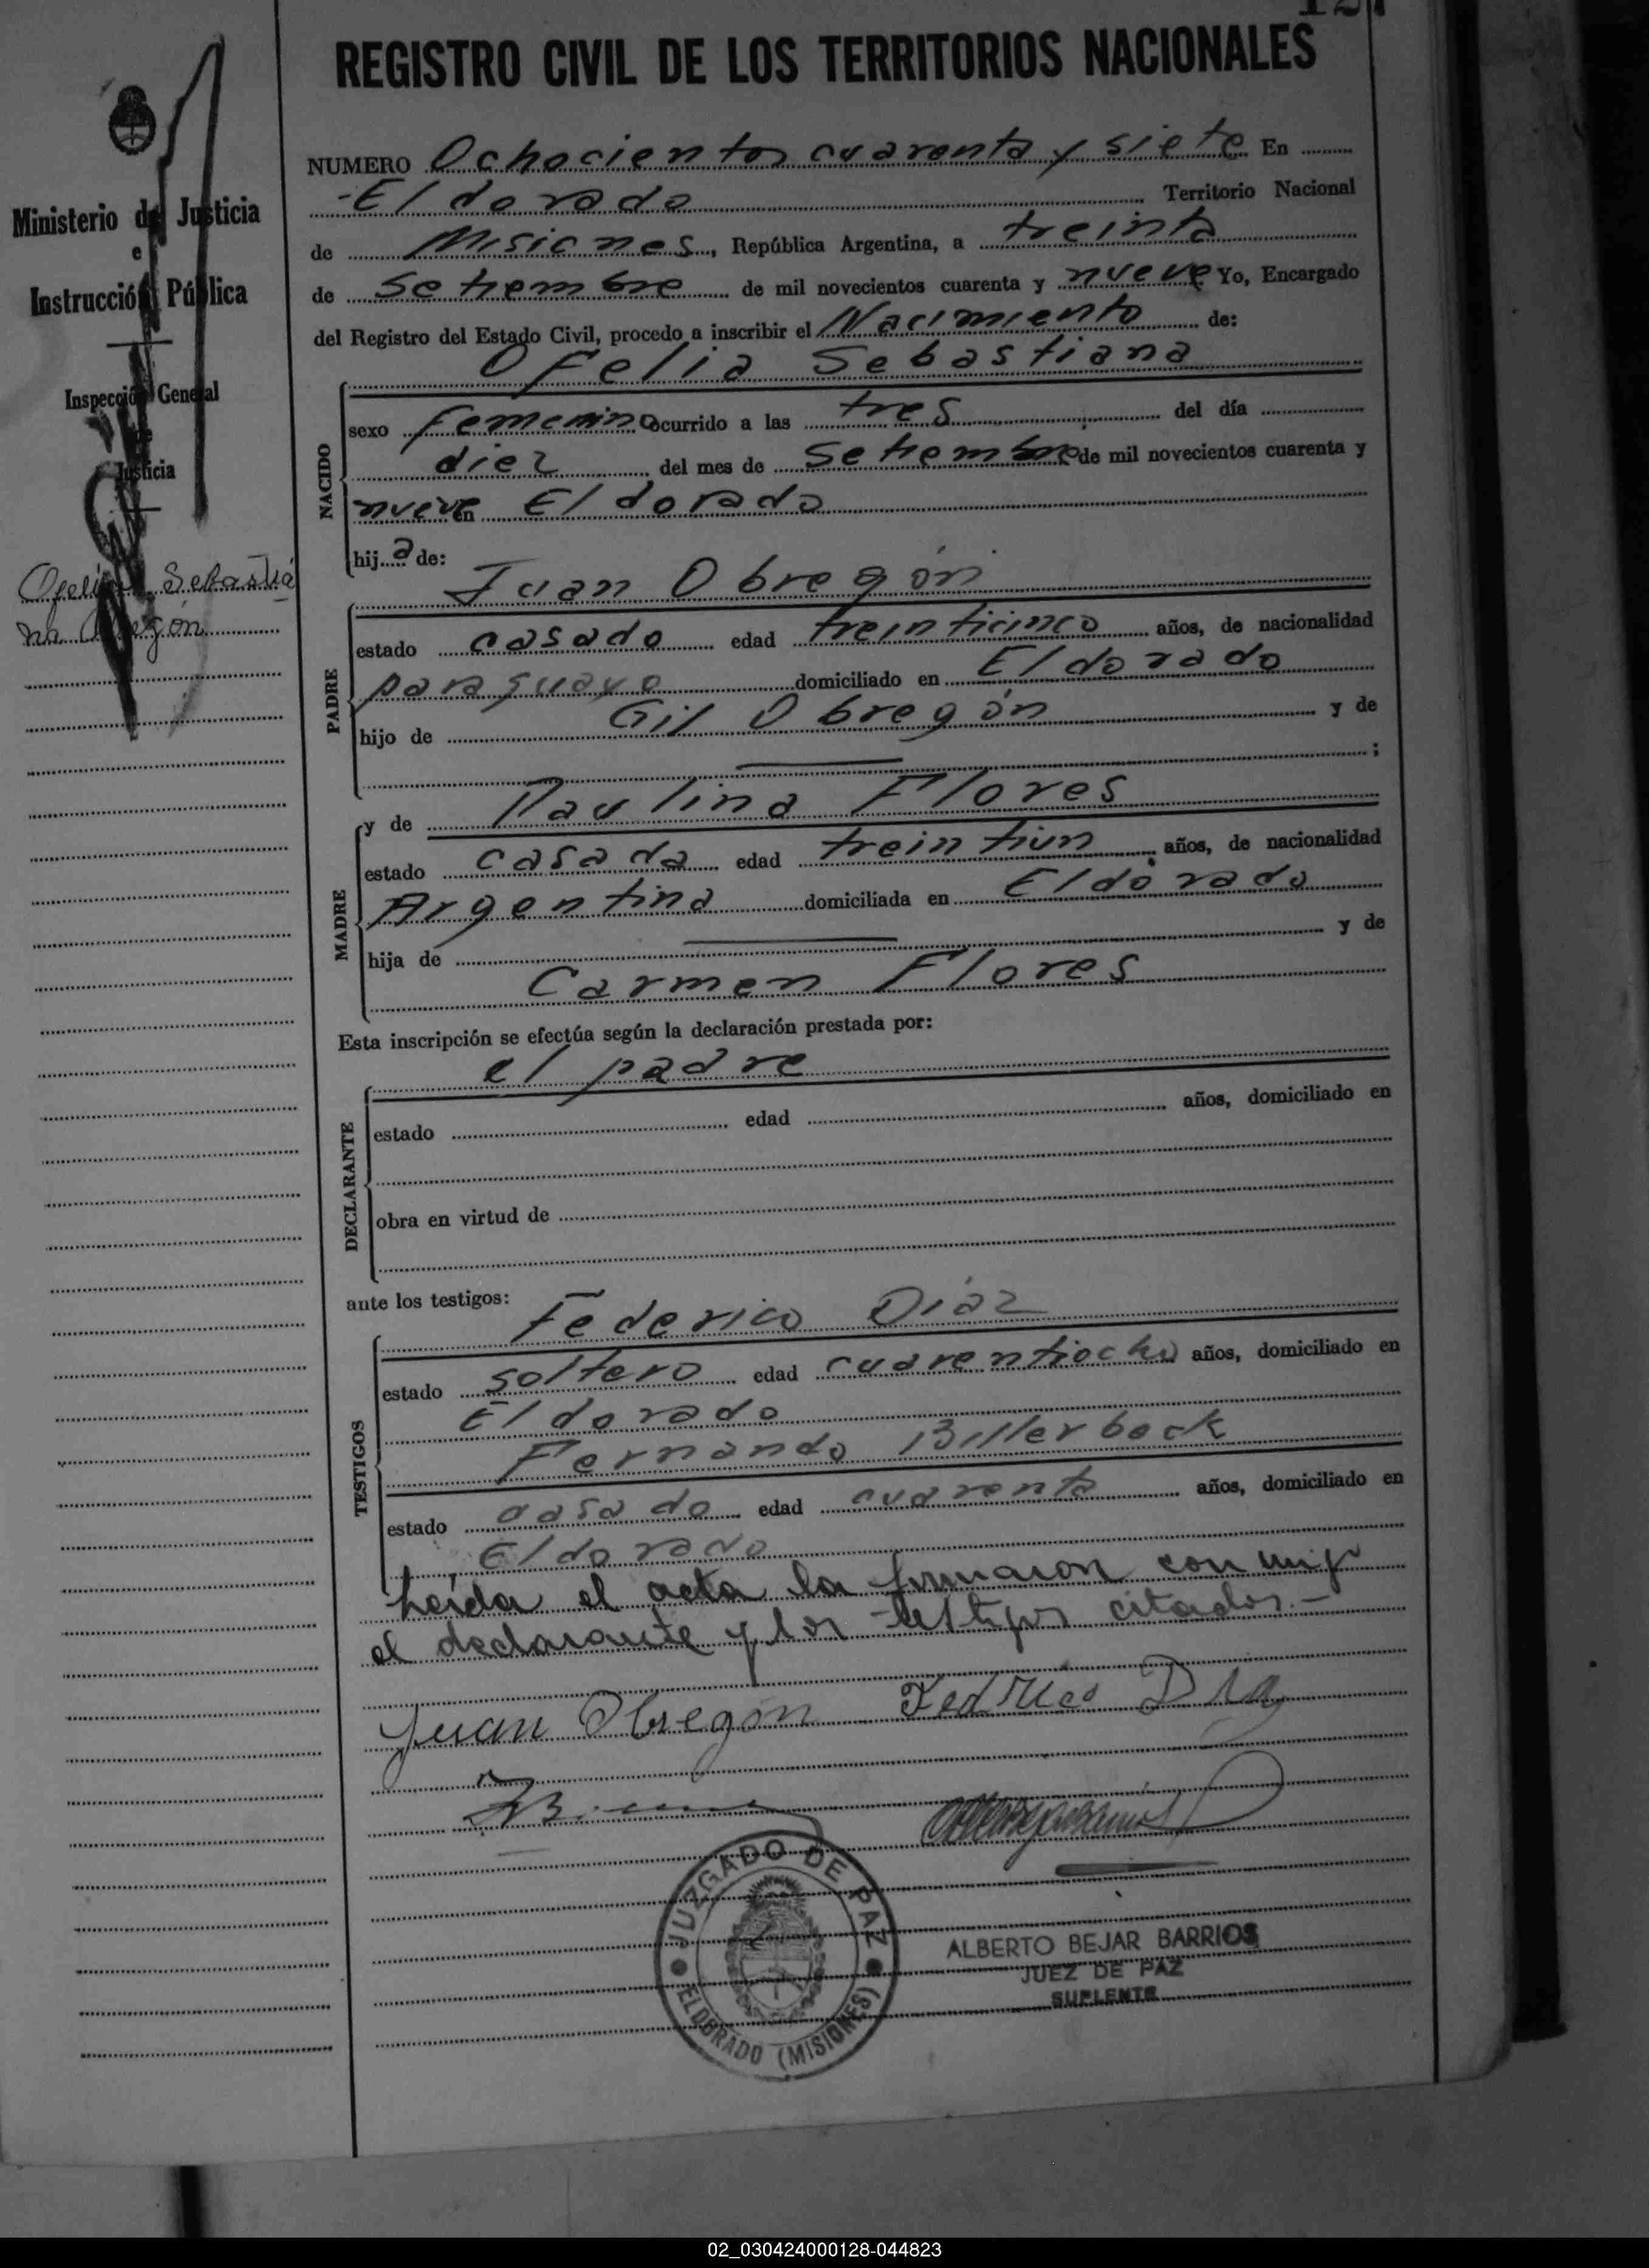 REGISTRO CIVIL DE LOS TERRITORIOS NACIONALES
Ministerio de Justicia
e
Instrucción Pública
Inspección General
de
Justicia
Ofelia Sebastiá
na Obregón
NUMERO Ochocientos cuarenta y siete En
- Eldorado Territorio Nacional
de Misiones, República Argentina, a treinta
de Setiembre de mil novecientos cuarenta y nueve Yo, Encargado
del Registro del Estado Civil, procedo a inscribir el Nacimiento de:
Ofelia Sebastiana
NACIDO
sexo femenino ocurrido a las tres del día
diez del mes de Setiembre de mil novecientos cuarenta y
nueve en Eldorado
hij a de:
Juan Obregón
PADRE
estado casado edad treinticinco años, de nacionalidad
paraguayo domiciliado en Eldorado
hijo de Gil Obregón y de
;
y de Paulina Flores
MADRE
estado casada edad treintiun años, de nacionalidad
Argentina domiciliada en Eldorado
hija de y de
Carmen Flores
Esta inscripción se efectúa según la declaración prestada por:
el padre
DECLARANTE
estado edad años, domiciliado en
obra en virtud de
ante los testigos:
Federico Díaz
TESTIGOS
estado soltero edad cuarentiocho años, domiciliado en
Eldorado
Fernando Billerbeck
estado casado edad cuarenta años, domiciliado en
Eldorado
Leída el acta la firmaron con migo
el declarante y los testigos citados.-
Juan Obregón Fedrico Diaz
JUZGADO DE PAZ
ELDORADO (MISIONES)
ALBERTO BEJAR BARRIOS
JUEZ DE PAZ
SUPLENTE
02_030424000128-044823